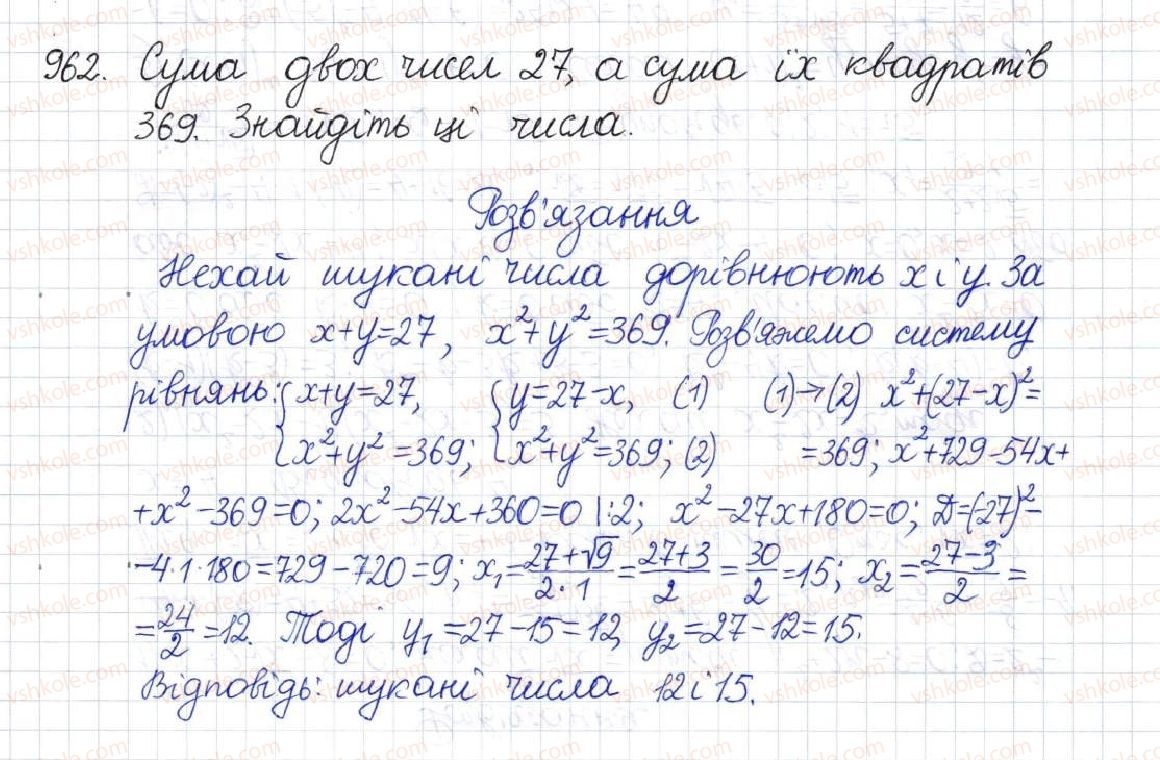 962. Сума двох чисел 27, а сума їх квадратів
369. Знайдіть ці числа.
Розв'язання
Нехай шукані числа дорівнюють x і y. За
умовою x+y=27, x²+y²=369. Розв'яжемо систему
рівнянь: {x+y=27, {y=27-x, (1) (1)→(2) x²+(27-x)²=
{x²+y²=369; {x²+y²=369; (2) =369; x²+729-54x+
+x²-369=0; 2x²-54x+360=0 |:2; x²-27x+180=0; D=(-27)²-
-4·1·180=729-720=9; x₁=(27+√9)/(2·1)=(27+3)/2=30/2=15; x₂=(27-3)/2=
=24/2=12. Тоді y₁=27-15=12, y₂=27-12=15.
Відповідь: шукані числа 12 і 15.